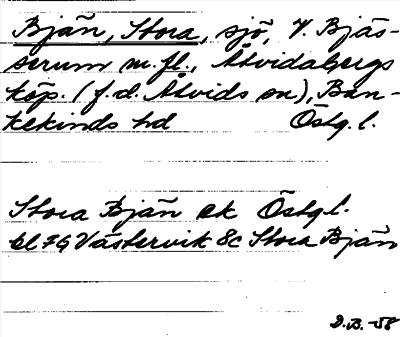 Bjän, Stora, sjö, V. Bjäs-
serum m.fl., Åtvidabergs
köp. (f.d. Åtvids sn), Ban-
kekinds hd Östg. l.
Stora Bjän ek Östgl.
bl 76 Västervik 8c Stora Bjän
D.B. -58